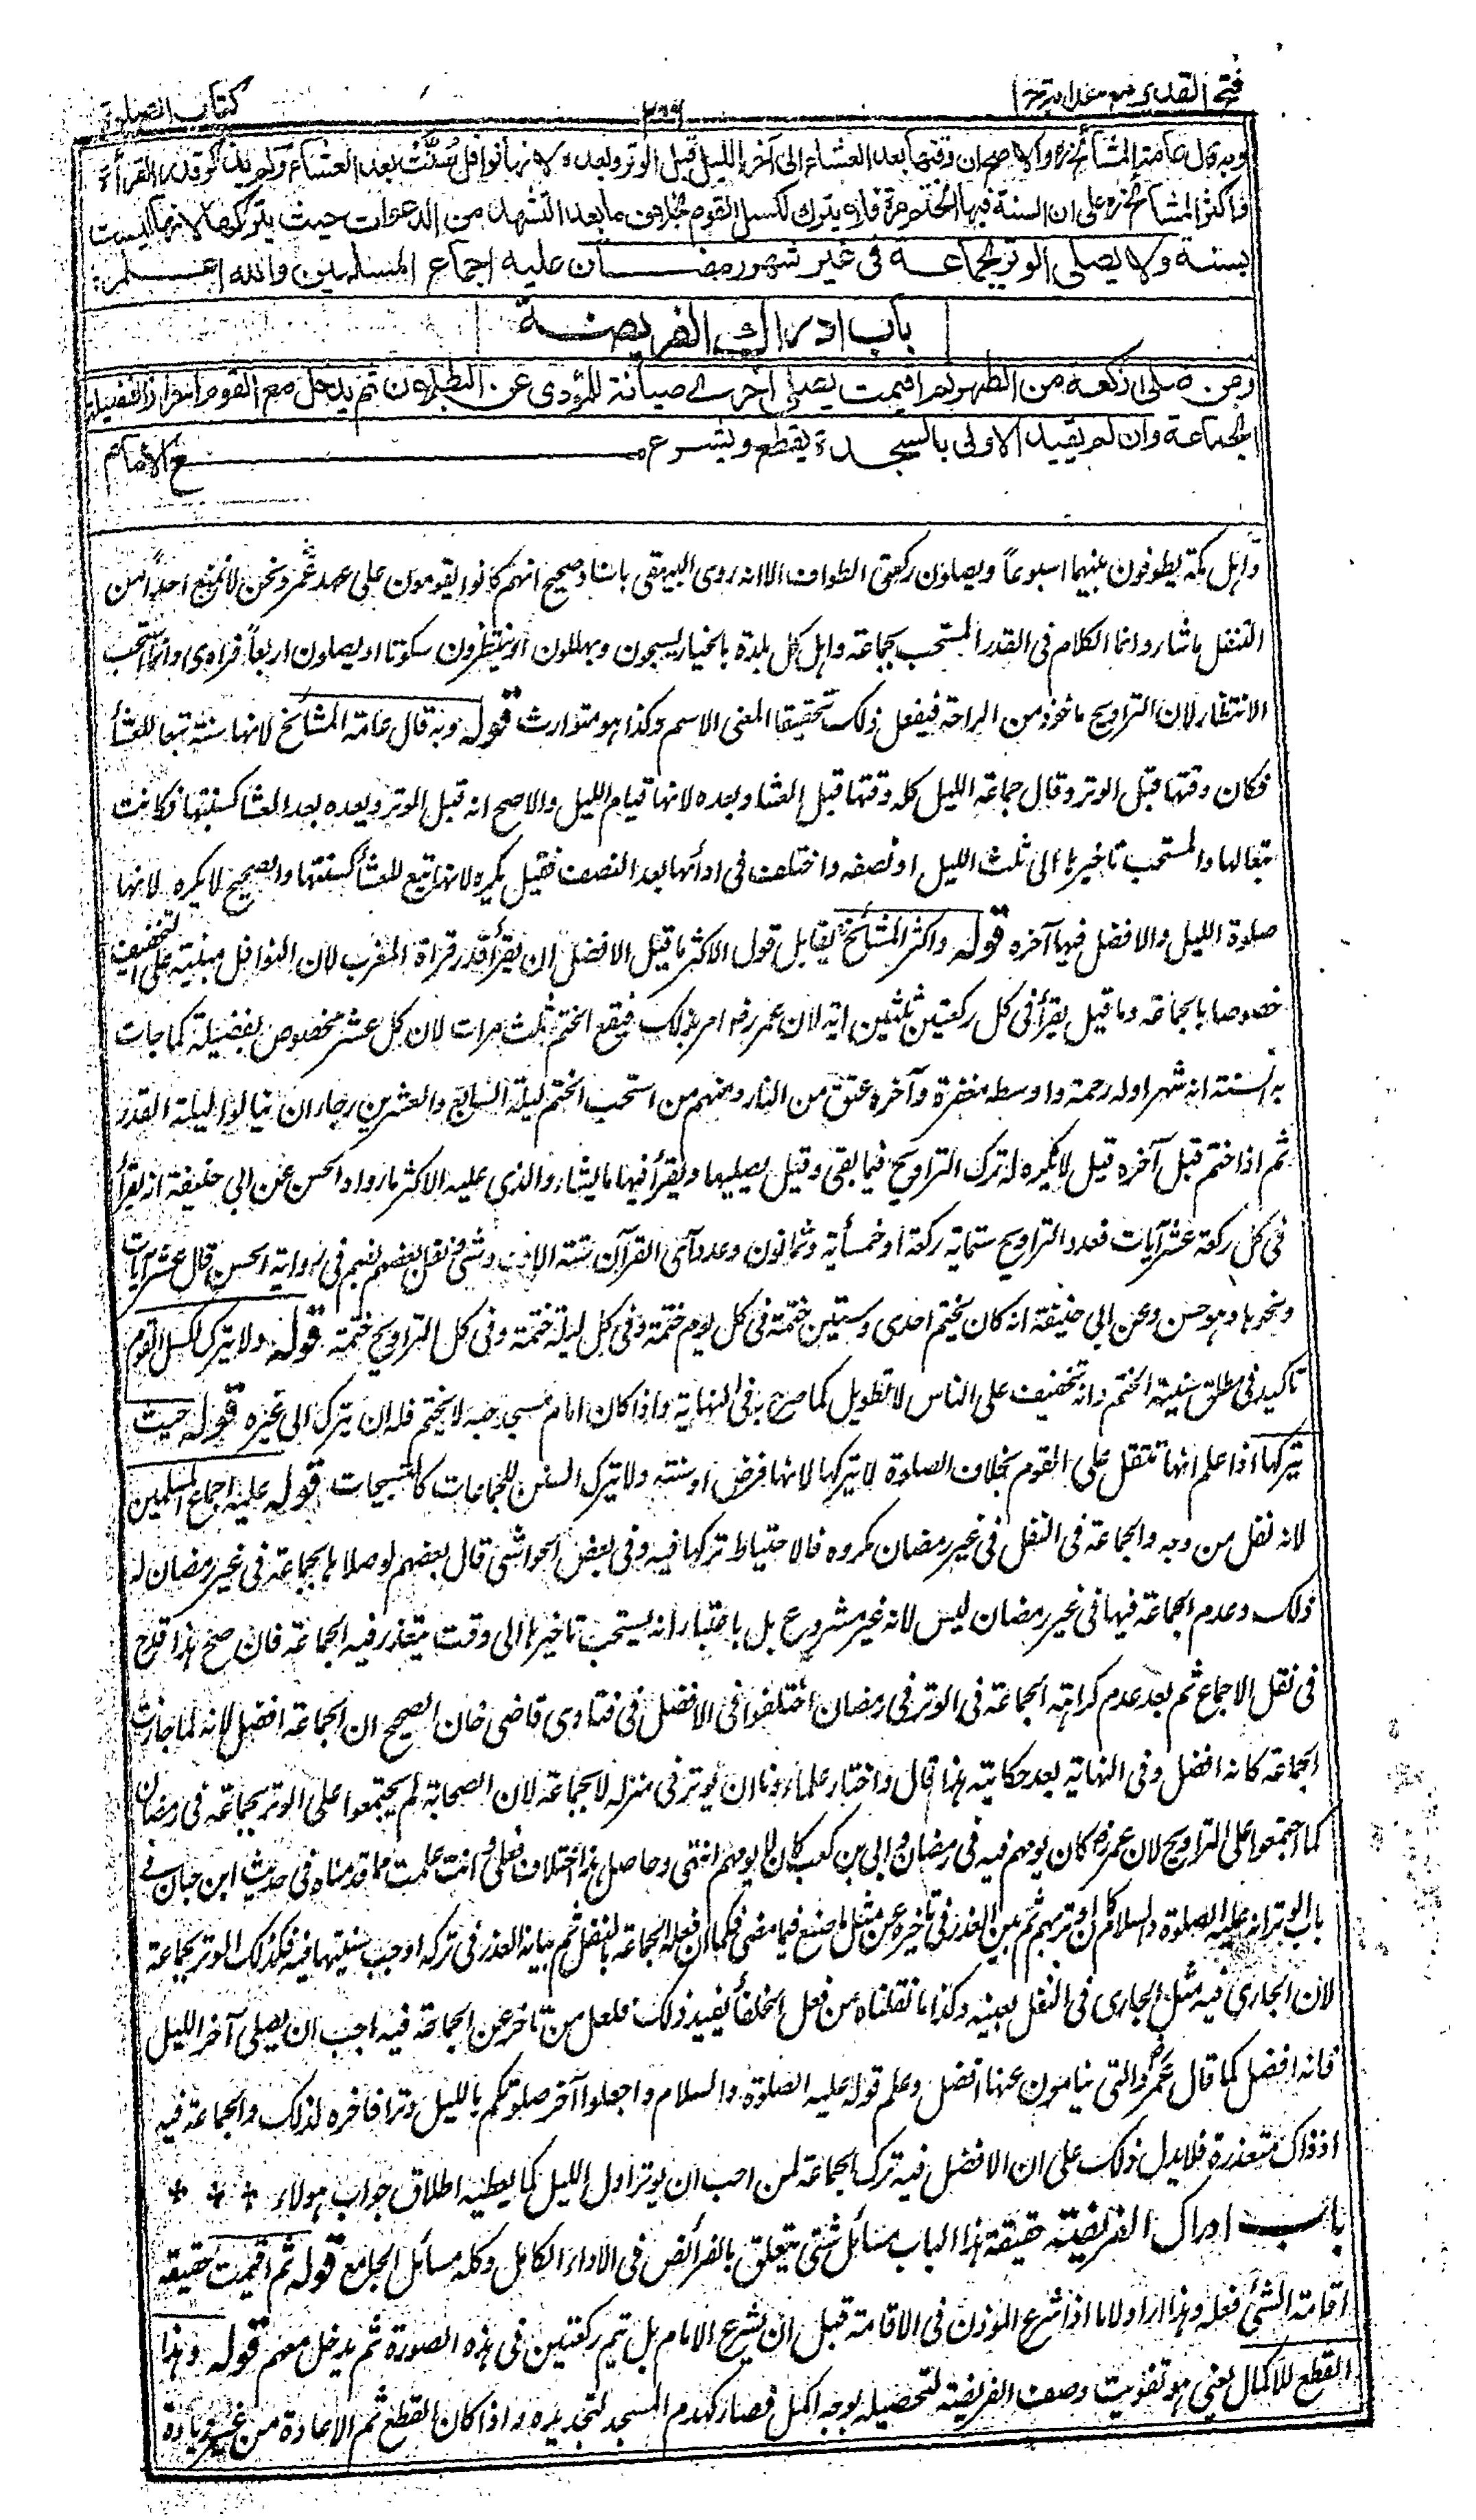 فتح القدير مع هداية ج ١
٢٠٩
كتاب الصلوة
وبه قال عامة المشائخ رہ والاصح ان وقتها بعد العشاء الى آخر الليل قبل الوتر وبعده لانها نوافل سنت بعد العشاء ولم يذكر قدر القراءة
فاكثر المشائخ رہ على ان السنة فيها الختم مرة فلا يترك لكسل القوم بخلاف ما بعد التشهد من الدعوات حيث يتركها لانها ليست
بسنة ولا يصلى الوتر بجماعة فى غير شهر رمضان عليه اجماع المسلمين والله اعلم
باب ادراك الفريضة
ومن صلى ركعة من الظهر ثم اقيمت يصلى اخرى صيانة للمؤدى عن البطلان ثم يدخل مع القوم احرازا لفضيلة
الجماعة وان لم يقيد الاولى بالسجدة يقطع ويشرع مع الامام
واہل مكة يطوفون بينهما اسبوعاً ويصلون ركعتى الطواف الا انه روى البيهقى باسناد صحيح انهم كانوا يقومون على عهد عمر ونحن لا نمنع احداً من
التنفل ماشاء وانما الكلام فى القدر المستحب بجماعة واہل كل بلدة بالخيار يسبحون ويهللون او ينتظرون سكوتا او يصلون اربعاً فرادى وانما استحب
الانتظار لان التراويح ماخوذ من الراحة فيفعل ذلك تحقيقا المعنى الاسم وكذا ہو متوارث قوله وبه قال عامة المشائخ لانها سنة تبعا للعشأ
فكان وقتها قبل الوتر وقال جماعة الليل كله وقتها قبل العشاء وبعده لانها قيام الليل والاصح انه قبل الوتر وبعده بعد العشا كسنتها فكانت
تبعا لها والمستحب تاخيرہا الى ثلث الليل او نصفه واختلف فى ادائها بعد النصف فقيل يكره لانها تبع للعشأ كسنتها والصحيح لا يكره لانها
صلوة الليل والافضل فيها آخره قوله واكثر المشائخ يقابل قول الاكثر ما قيل الافضل ان يقرأ قدر قراة المغرب لان النوافل مبنية على التخفيف
خصوصا بالجماعة وما قيل يقرأ فى كل ركعتين ثلثين اية لان عمر رضـ امر بذلك فيقع الختم ثلث مرات لان كل عشر مخصوص بفضيلة كما جات
به السنة انه شهر اوله رحمة واوسطه مغفرة وآخره عتق من النار ومنهم من استحب الختم ليلة السابع والعشرين رجاء ان ينالوا ليلة القدر
ثم اذا ختم قبل آخره قيل لا يكره له ترك التراويح فيما بقى وقيل يصليها ويقرأ فيها ما يشاء والذى عليه الاكثر ما رواه الحسن عن ابى حنيفة انه يقرأ
فى كل ركعة عشر آيات فعدد التراويح ستماية ركعة او خمسأية وثمانون وعدد آى القرآن ستة الاف وشئ فنقل بعضهم فى رواية الحسن قال عشر آيات
ونحوہا وہو حسن وعن ابى حنيفة انه كان يختم احدى وستين ختمة فى كل يوم ختمة وفى كل ليلة ختمة وفى كل التراويح ختمة قوله ولا يترك لكسل القوم
تاكيد فى مطلق سنية الختم وانه تخفيف على الناس لا تطويل كما صرح به فى النهاية واذا كان امام مسجد حيه لا يختم فله ان يترك الى غيره قوله حيث
يتركها اذا علم انها تثقل على القوم بخلاف الصلوة لا يتركها لانها فرض او سنة ولا يترك السنن للجماعات كالتسبيحات قوله عليه اجماع المسلمين
لانه نفل من وجه والجماعة فى النفل فى غير رمضان مكروه فالاحتياط تركها فيه وفى بعض الحواشى قال بعضهم لو صلاہا بجماعة فى غير رمضان له
ذلك وعدم الجماعة فيها فى غير رمضان ليس لانه غير مشروع بل باعتبار انه يستحب تاخيرہا الى وقت يتعذر فيه الجماعة فان صح ہذا قدح
فى نقل الاجماع ثم بعد عدم كراہة الجماعة فى الوتر فى رمضان اختلفوا فى الافضل فى فتاوى قاضى خان الصحيح ان الجماعة افضل لانه لما جازت
الجماعة كانه افضل وفى النهاية بعد حكاية ہذا قال واختار علماءونا ان يوتر فى منزله لا بجماعة لان الصحابة لم يجتمعوا على الوتر بجماعة فى رمضان
كما اجتمعوا على التراويح لان عمر رضـ كان يومهم فيه فى رمضان وابى بن كعب كان لا يومهم انتهى وحاصل ہذا اختلاف فعلى وانت علمت مما قدمناه فى حديث ابن حبان فى
باب الوتر انه عليه الصلوة والسلام كان اوتر بهم ثم بين العذر فى تاخيره عن مثل ما صنع فيما مضى فكما ان فعله الجماعة بالنفل ثم بيانه العذر فى تركه اوجب سنيتها فيه فكذلك الوتر بجماعة
لان الجارى فيه مثل الجارى فى النفل بعينه وكذا ما نقلناه من فعل الخلفأ يفيد ذلك فلعل من تاخر عن الجماعة فيه احب ان يصلى آخر الليل
فانه افضل كما قال عمر والتى ينامون عنها افضل وعلم قوله عليه الصلوة والسلام واجعلوا آخر صلوتكم بالليل وترا فاخره لذلك والجماعة فيه
اذ ذاك متعذرة فلا يدل ذلك على ان الافضل فيه ترك الجماعة لمن احب ان يوتر اول الليل كما يعطيه اطلاق جواب ہولاء
باب ادراك الفريضة حقيقة ہذا الباب مسائل شتى يتعلق بالفرائض فى الاداء الكامل وكله مسائل الجامع قوله ثم اقيمت حقيقة
اقامة الشئ فعله وہذا اراد لا ما اذا شرع الموذن فى الاقامة قبل ان يشرع الامام بل يتم ركعتين فى ہذه الصورة ثم يدخل معهم قوله وہذا
القطع للاكمال يعنى ہو تفويت وصف الفريضة لتحصيله بوجه اكمل فصار كهدم المسجد لتجديده واذا كان القطع ثم الاعادة من غير زيادة